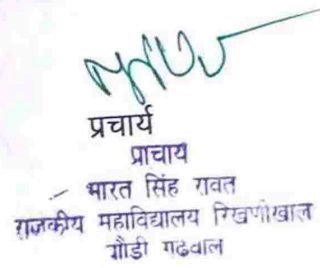 प्रचार्य
प्राचाय
भारत सिंह रावत
राजकीय महाविद्यालय रिखणीखाल
गौडी गढवाल